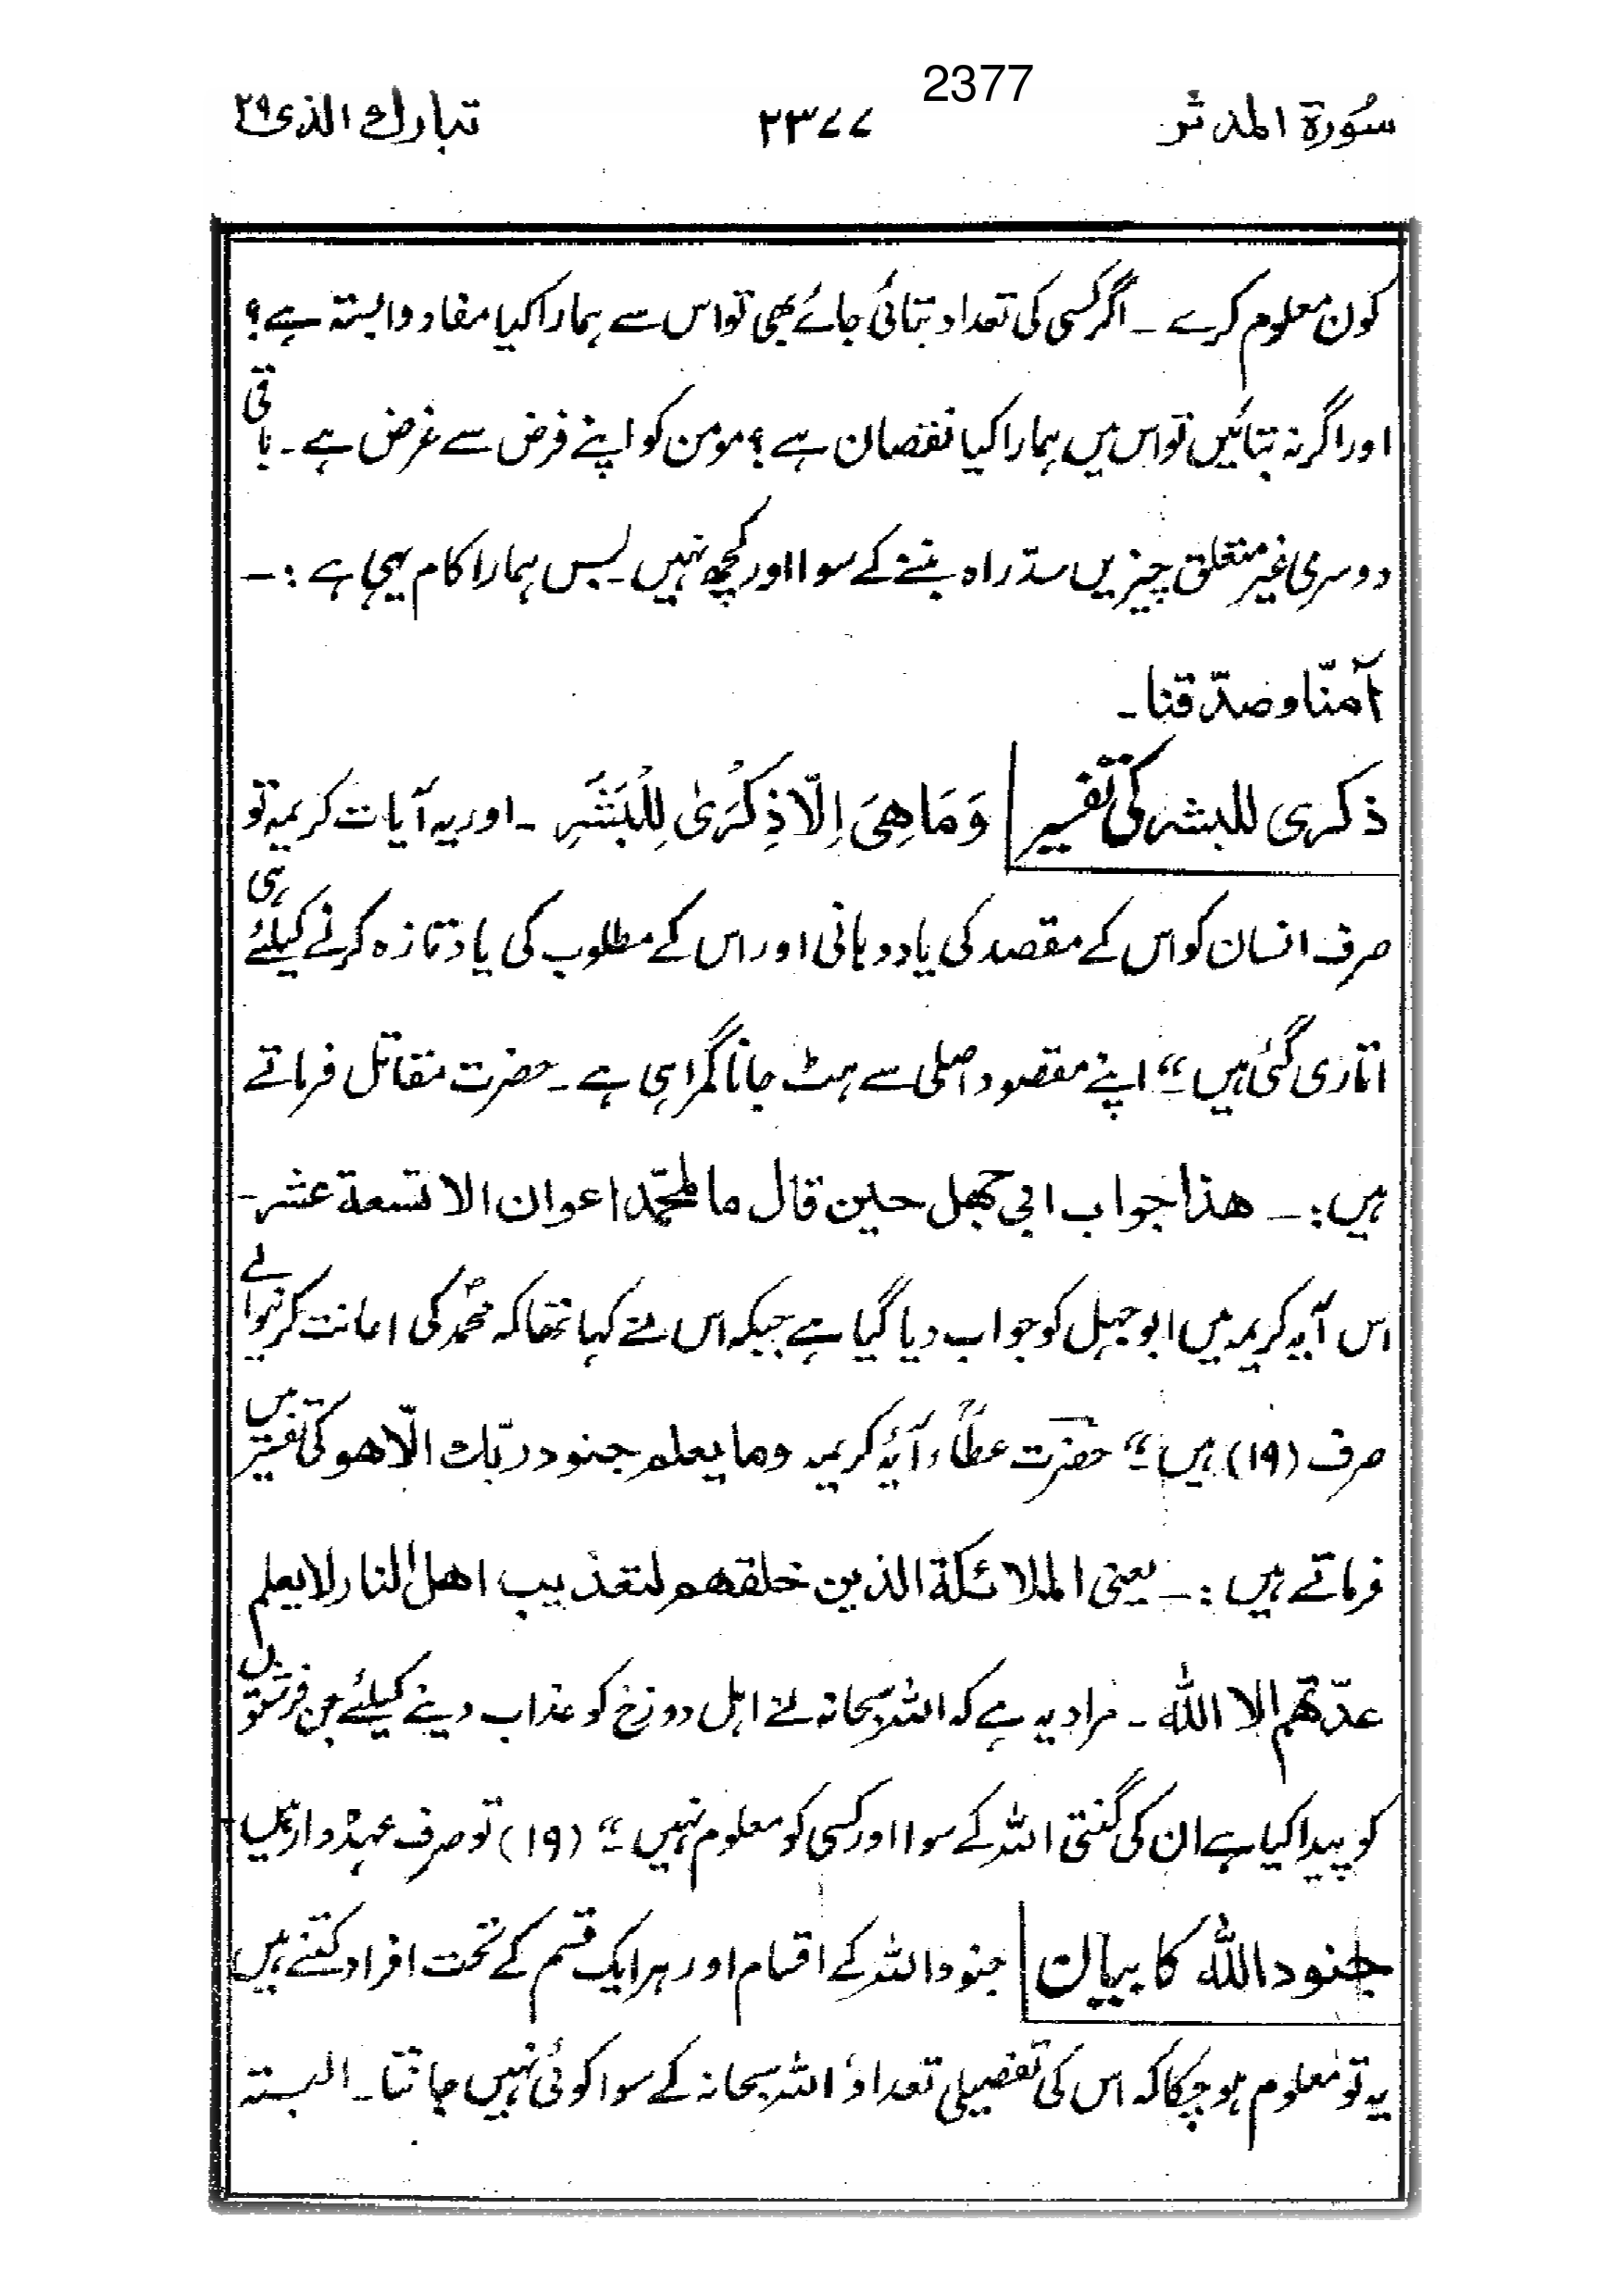 2377
سُورۃ المدثر ۲۳۷۷ تبارك الذی ۲۹
کون معلوم کرے ۔ اگر کسی کی تعداد بتائی جائے بھی تو اس سے ہمارا کیا مفاد وابستہ ہے؟
اور اگر نہ بتائیں تو اس میں ہمارا کیا نقصان ہے؟ مومن کو اپنے فرض سے غرض ہے ۔ باقی
دوسری غیر متعلق چیزیں سدّ راہ بننے کے سوا اور کچھ نہیں ۔ بس ہمارا کام یہی ہے :۔
آمنّا وصدّقنا ۔
ذکری للبشر کی تفسیر وَمَا هِیَ اِلَّا ذِکْرٰی لِلْبَشَرِ ۔ اور یہ آیات کریمہ تو
صرف انسان کو اس کے مقصد کی یاد دہانی اور اس کے مطلوب کی یاد تازہ کرنے کیلئے ہی
اتاری گئی ہیں ۔“ اپنے مقصود اصلی سے ہٹ جانا گمراہی ہے ۔ حضرت مقاتل فرماتے
ہیں :۔ هذا جواب ابی جهل حین قال ما لمحمّد اعوان الا تسعة عشر ۔
اس آیہ کریمہ میں ابوجہل کو جواب دیا گیا ہے جبکہ اس نے کہا تھا کہ محمدؐ کی اعانت کرنیوالے
صرف (۱۹) ہیں ۔“ حضرت عطاؒء آیۂ کریمہ وما یعلم جنود ربّك الّا هو کی تفسیر میں
فرماتے ہیں :۔ یعنی الملائكة الذین خلقهم لتعذیب اهل النار لا یعلم
عدّتهم الا الله ۔ مراد یہ ہے کہ اللہ سبحانہ نے اہل دوزخ کو عذاب دینے کیلئے جن فرشتوں
کو پیدا کیا ہے ان کی گنتی اللہ کے سوا اور کسی کو معلوم نہیں ۔“ (۱۹) تو صرف عہدہ دار ہیں
جنود اللہ کا بیان جنود اللہ کے اقسام اور ہر ایک قسم کے تحت افراد کتنے ہیں
یہ تو معلوم ہو چکا کہ اس کی تفصیلی تعداد اللہ سبحانہ کے سوا کوئی نہیں جانتا ۔ البتہ